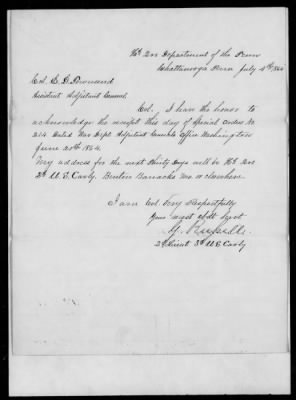 Hd Qrs Department of the Tenn
Chattanooga Tenn July 4th 1864
Col. E. D. Townsend
Assistant Adjutant General
Col, I have the honor to
acknowledge the receipt this day of Special Orders No
214 Dated War Dept Adjutant Generals Office Washington
June 20th 1864.
My address for the next thirty days will be Hd Qrs
3d U. S. Cavly. Benton Barracks Mo. or elsewhere.
I am Col Very Respectfully
Your most obdt Servt
Russell
2d Lieut 3d U S Cavly